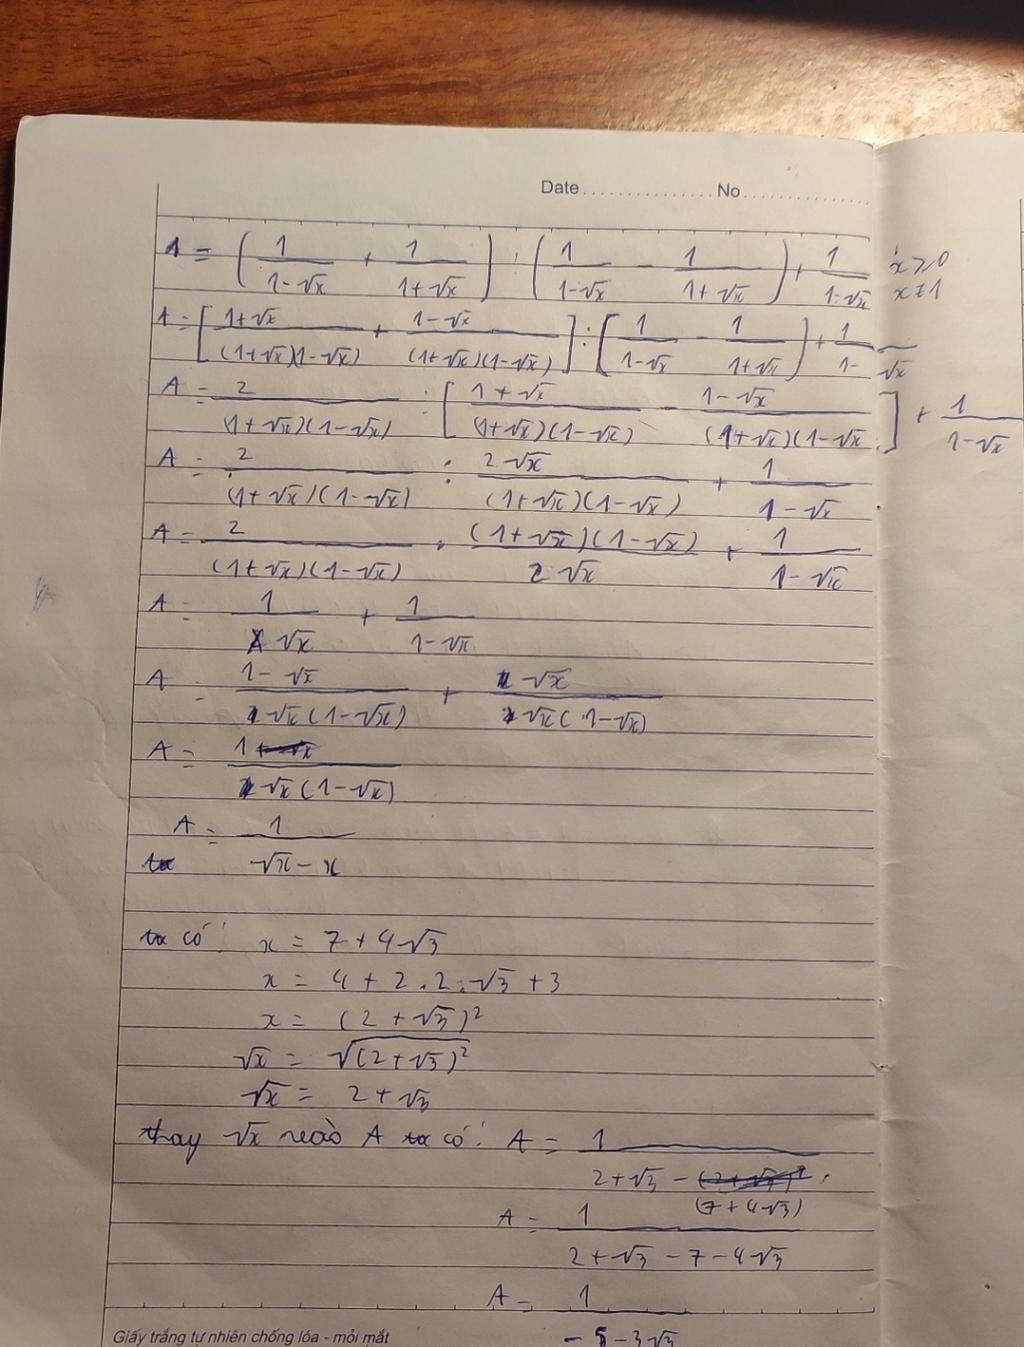 Date............... No...............
A = (1/(1-√x) + 1/(1+√x)) : (1/(1-√x) - 1/(1+√x)) + 1/(1-√x) x>0 x≠1
A = [(1+√x)/((1+√x)(1-√x)) + (1-√x)/((1+√x)(1-√x))] : (1/(1-√x) - 1/(1+√x)) + 1/(1-√x)
A = 2/((1+√x)(1-√x)) : [(1+√x)/((1+√x)(1-√x)) - (1-√x)/((1+√x)(1-√x))] + 1/(1-√x)
A = 2/((1+√x)(1-√x)) : 2√x/((1+√x)(1-√x)) + 1/(1-√x)
A = 2/((1+√x)(1-√x)) . (1+√x)(1-√x)/(2√x) + 1/(1-√x)
A = 1/√x + 1/(1-√x)
A = (1-√x)/(√x(1-√x)) + √x/(√x(1-√x))
A = 1/(√x(1-√x))
A = 1/(√x-x)
ta có: x = 7+4√3
x = 4 + 2.2.√3 + 3
x = (2+√3)²
√x = √((2+√3)²)
√x = 2+√3
thay √x vào A ta có: A = 1/(2+√3 - (7+4√3))
A = 1/(2+√3-7-4√3)
A = 1/(-5-3√3)
Giấy trắng tự nhiên chống lóa - mỏi mắt